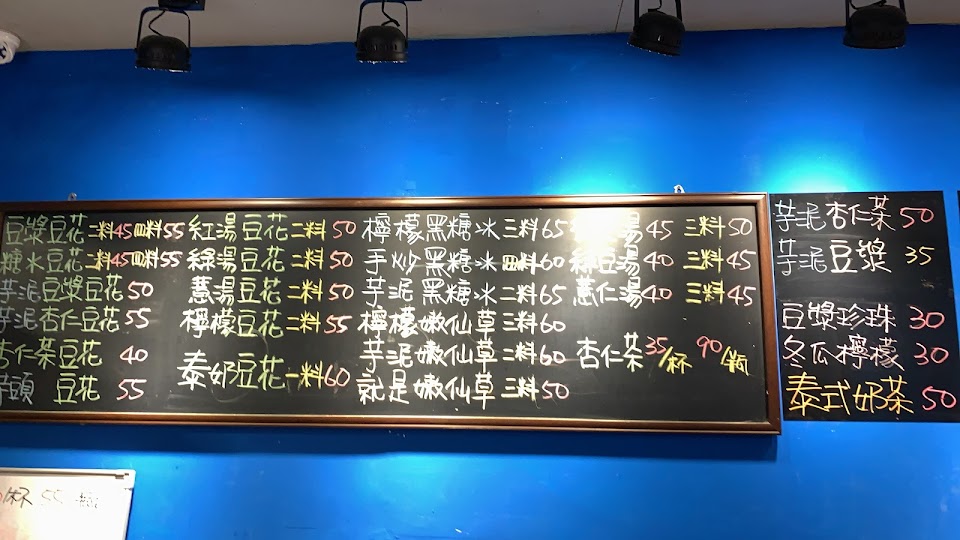 豆漿豆花 二料45 四料55
糖水豆花 二料45 四料55
芋泥豆漿豆花 50
芋泥杏仁豆花 55
杏仁茶豆花 40
芋頭 豆花 55
紅湯豆花 二料 50
綠湯豆花 二料 50
薏湯豆花 二料 50
檸檬豆花 二料 55
泰奶豆花 一料 60
檸檬黑糖冰 三料 65
手炒黑糖冰 四料 60
芋泥黑糖冰 二料 65
檸檬嫩仙草 三料 60
芋泥嫩仙草 二料 60
就是嫩仙草 三料 50
湯 45 三料 50
綠豆湯 40 三料 45
薏仁湯 40 三料 45
杏仁茶 35/杯 90/瓶
芋泥杏仁茶 50
芋泥豆漿 35
豆漿珍珠 30
冬瓜檸檬 30
泰式奶茶 50
杯 55